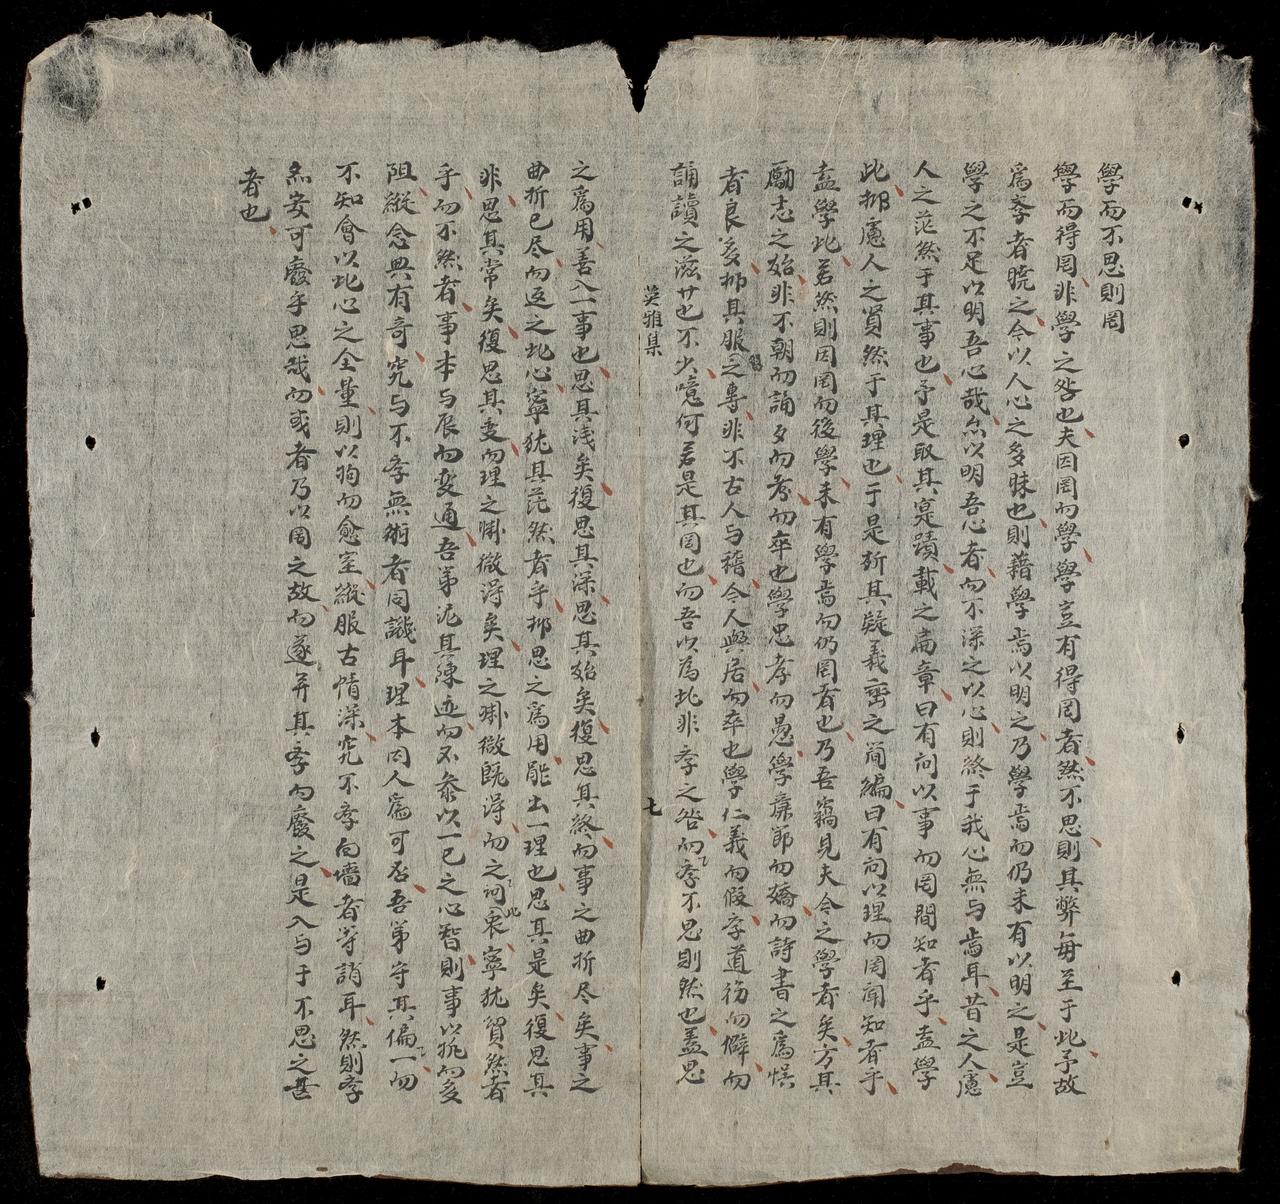 學而不思則罔
學而得罔非學之咎也夫因罔而學學豈有得罔者然不思則其弊每至于此予故
為李者曉之今以人心之多昧也則藉學焉以明之乃學焉而仍未有以明之是豈
學之不足以明吾心哉亦以明吾心者而不深之以心則終于我心無与焉耳昔之人慮
人之茫然于其事也于是取其寔蹟載之扁章曰有问以事而罔聞知者乎盍學
此抑慮人之貿然于其理也于是析其疑義寄之简編曰有问以理而罔聞知者乎
盍學此若然則因罔而後學未有學焉而仍罔者也乃吾竊見夫今之學者矣方其
勵志之始非不朝而誦夕而考而卒也學忠孝而愚學廉節而矯而詩書之為悞
者良多抑其服習之專非不古人与稽今人與居而卒也學仁義而假孝道術而僻而
誦讀之滋甘也不少噫何若是其罔也而吾以為此非孝之咎而孝不思則然也盖思
英雅集
七
之為用善入一事也思其浅矣復思其深思其始矣復思其終而事之曲折尽矣事之
曲折已尽而返之此心寧犹其茫然者乎抑思之為用能出一理也思其是矣復思其
非思其常矣復思其变而理之淵微淂矣理之淵微既淂而之问此衷寧犹貿然者
乎而不然者事本与辰而变通吾第泥其陳迹而不叅以一己之心智則事以執而多
阻縱念典有奇究与不孝無術者同譏耳理本因人為可否吾第守其偏一而
不知會以此心之全量則以拘而愈室縱服古情深究不孝向墻者等誚耳然則孝
無安可廢乎思哉而或者乃以罔之故而遂并其孝而廢之是入与于不思之甚
者也